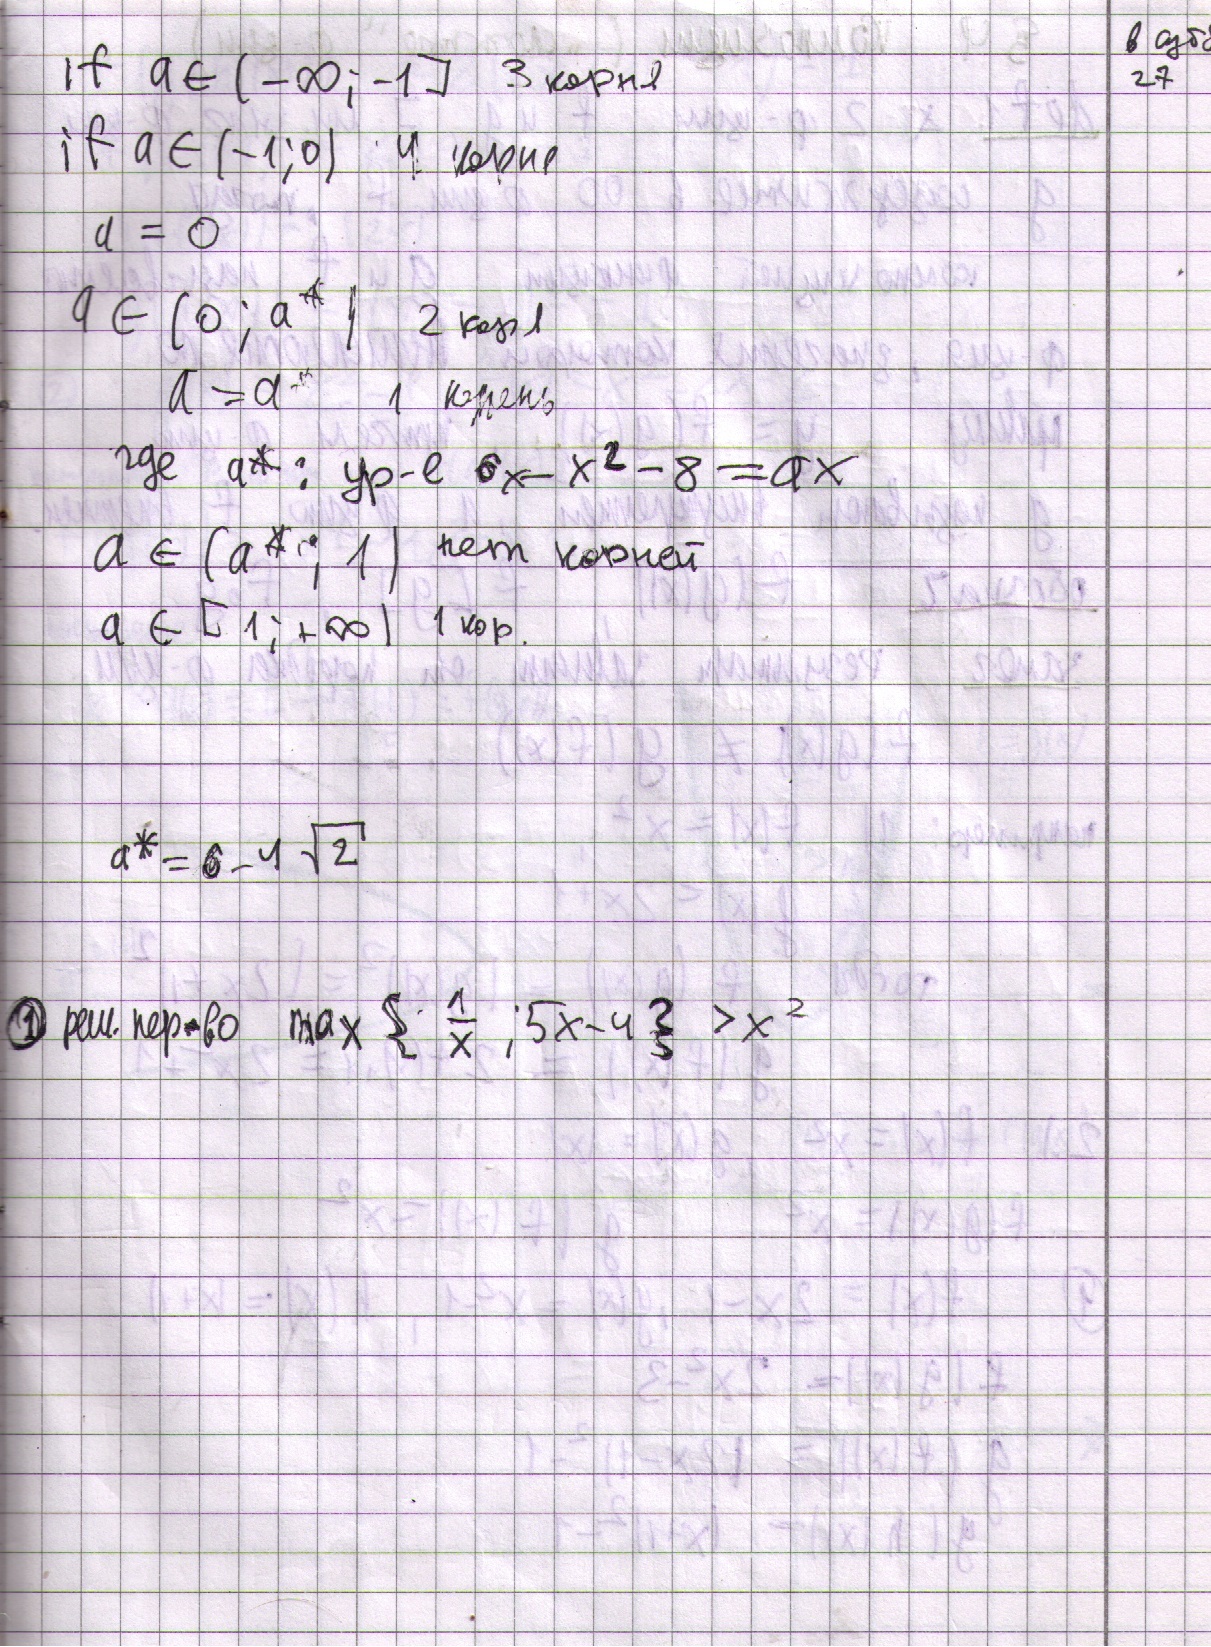 в суб
27
if a ∈ (-∞; -1] 3 корня
if a ∈ (-1; 0) 4 корня
a = 0
a ∈ (0; a*) 2 корн
a = a* 1 корень
где a*: ур-е 6x - x² - 8 = ax
a ∈ (a*; 1) нет корней
a ∈ [1; +∞) 1 кор.
a* = 6 - 4√2
① реш. нер-во max { 1/x ; 5x - 4 } > x²